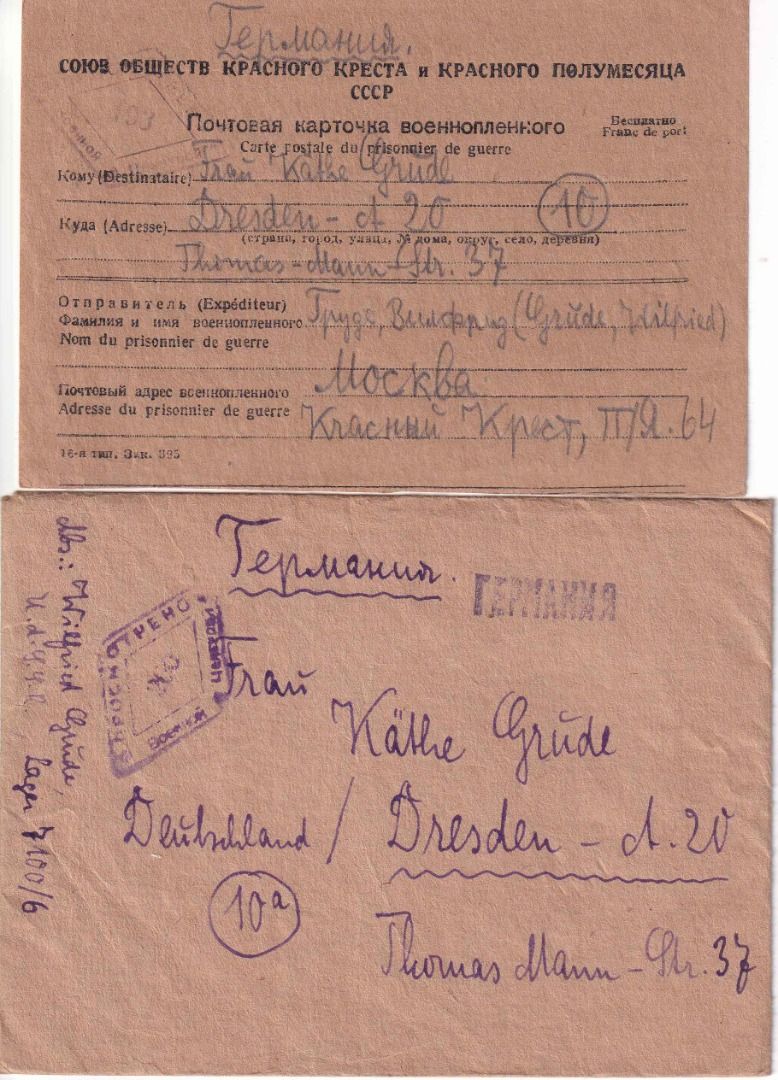 Германия.
СОЮЗ ОБЩЕСТВ КРАСНОГО КРЕСТА и КРАСНОГО ПОЛУМЕСЯЦА
СССР
Почтовая карточка военнопленного
Carte postale du prisonnier de guerre
Бесплатно
Franc de port
Кому (Destinataire) Frau Käthe Grude
Куда (Adresse) Dresden - A 20 10
(страна, город, улица, № дома, округ, село, деревня)
Thomas-Mann-Str. 37
Отправитель (Expéditeur)
Фамилия и имя военнопленного Груде, Вилфрид (Grude, Wilfried)
Nom du prisonnier de guerre
Почтовый адрес военнопленного Москва
Adresse du prisonnier de guerre Красный Крест, П/Я. 64
16-я тип. Зак. 395
Германия.
ГЕРМАНИЯ
ПРОСМОТРЕНО
Военной
Цензурой
Abs.: Wilfried Grude,
Lager 7100/6
Frau
Käthe Grude
Deutschland / Dresden - A. 20
10a
Thomas Mann-Str. 37